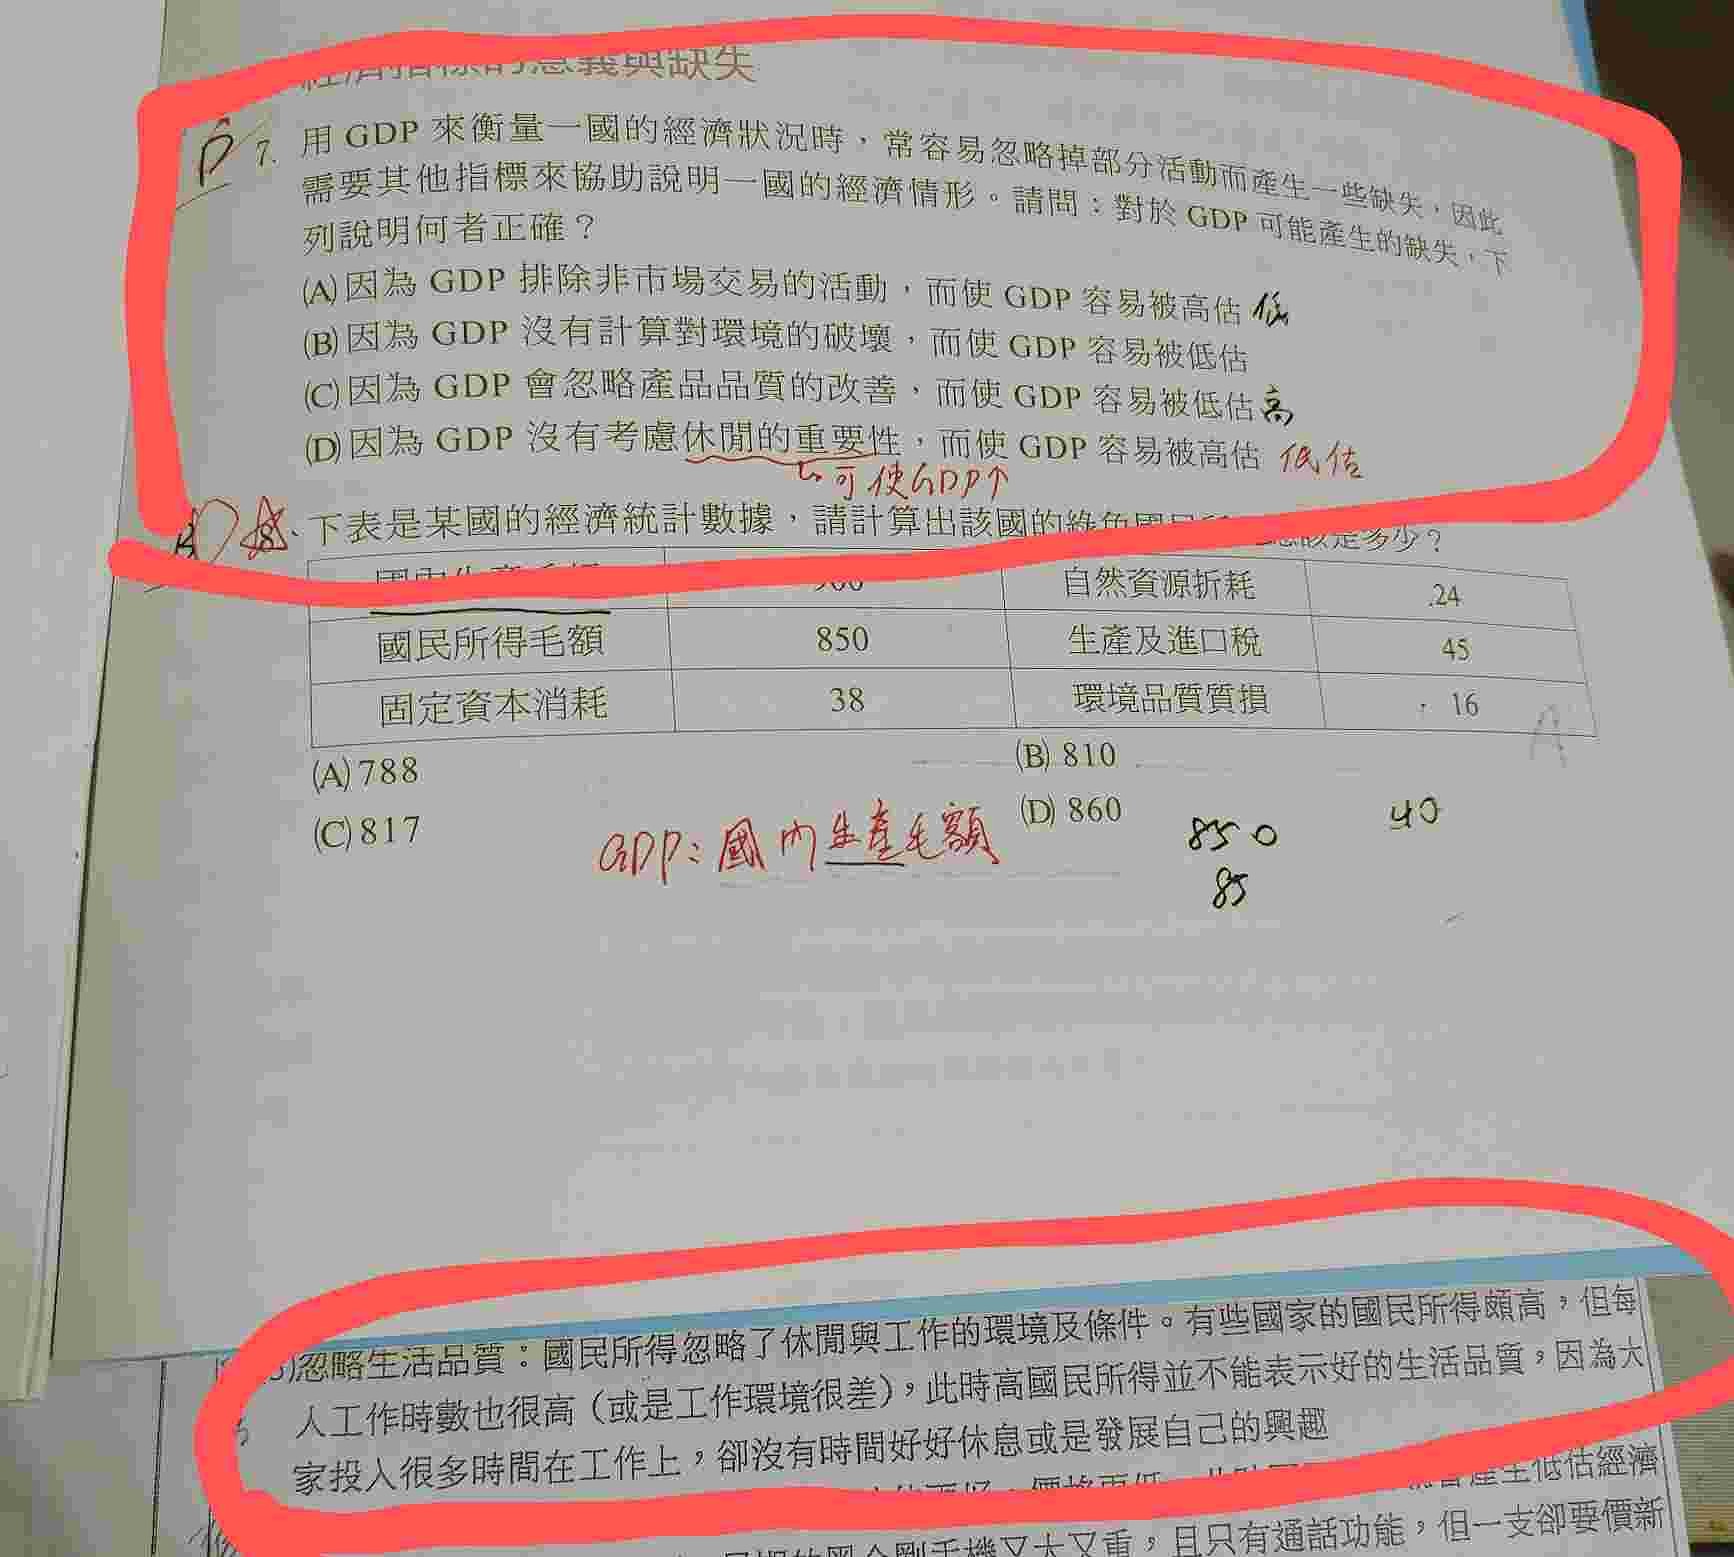 經濟指標的意義與缺失
D 7. 用 GDP 來衡量一國的經濟狀況時，常容易忽略掉部分活動而產生一些缺失，因此
需要其他指標來協助說明一國的經濟情形。請問：對於 GDP 可能產生的缺失，下
列說明何者正確？
(A)因為 GDP 排除非市場交易的活動，而使 GDP 容易被高估 低
(B)因為 GDP 沒有計算對環境的破壞，而使 GDP 容易被低估
(C)因為 GDP 會忽略產品品質的改善，而使 GDP 容易被低估 高
(D)因為 GDP 沒有考慮休閒的重要性，而使 GDP 容易被高估 低估
可使GDP↑
8. 下表是某國的經濟統計數據，請計算出該國的綠色國民所 應該是多少？
國內生產毛額 900 自然資源折耗 24
國民所得毛額 850 生產及進口稅 45
固定資本消耗 38 環境品質質損 16
A
(A) 788 (B) 810
(C) 817 (D) 860
GDP：國內生產毛額
850 40
85
忽略生活品質：國民所得忽略了休閒與工作的環境及條件。有些國家的國民所得頗高，但每
人工作時數也很高（或是工作環境很差），此時高國民所得並不能表示好的生活品質，因為大
家投入很多時間在工作上，卻沒有時間好好休息或是發展自己的興趣
產生低估經濟
黑金剛手機又大又重，且只有通話功能，但一支卻要價新